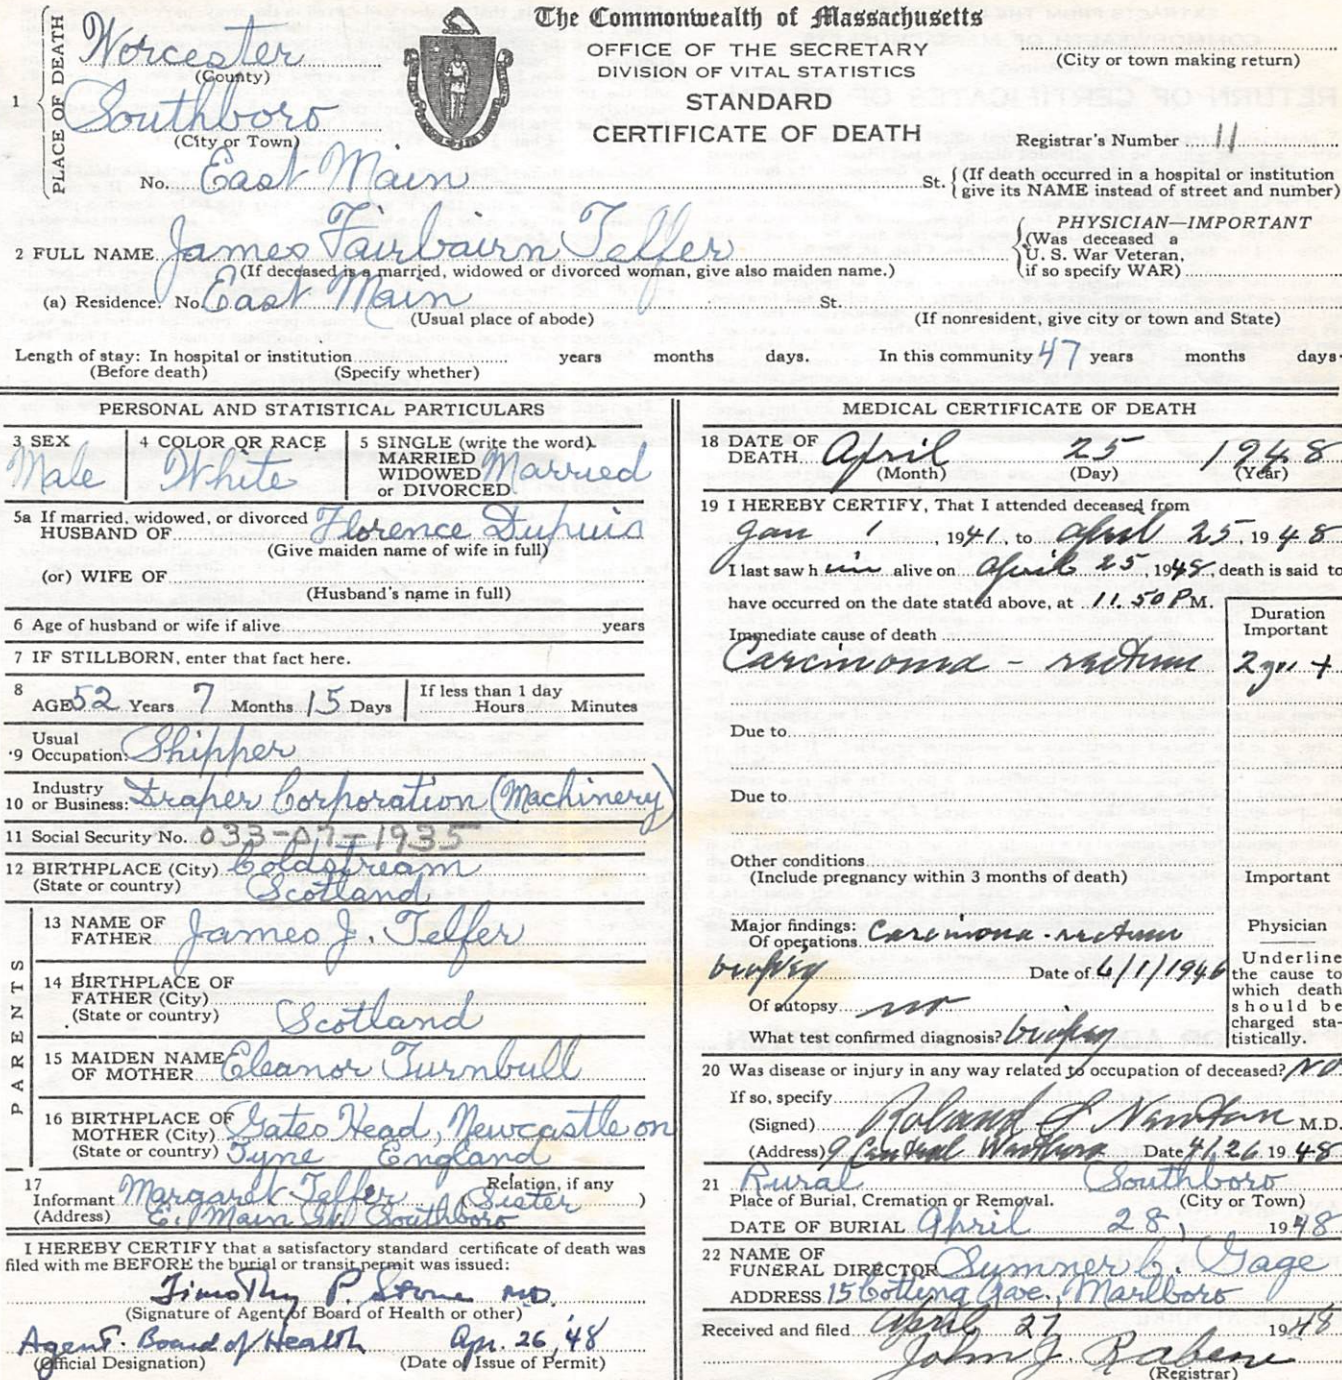 The Commonwealth of Massachusetts
OFFICE OF THE SECRETARY
DIVISION OF VITAL STATISTICS
STANDARD
CERTIFICATE OF DEATH
1 PLACE OF DEATH
Worcester
(County)
Southboro
(City or Town)
No. East Main St. (If death occurred in a hospital or institution give its NAME instead of street and number)
(City or town making return)
Registrar's Number 11
2 FULL NAME James Fairbairn Telfer
(If deceased is a married, widowed or divorced woman, give also maiden name.)
PHYSICIAN—IMPORTANT
(Was deceased a
U. S. War Veteran,
if so specify WAR)
(a) Residence. No. East Main St.
(Usual place of abode) (If nonresident, give city or town and State)
Length of stay: In hospital or institution years months days. In this community 47 years months days.
(Before death) (Specify whether)
PERSONAL AND STATISTICAL PARTICULARS
3 SEX Male
4 COLOR OR RACE White
5 SINGLE (write the word)
MARRIED
WIDOWED Married
or DIVORCED
5a If married, widowed, or divorced
HUSBAND OF Florence Dupuis
(Give maiden name of wife in full)
(or) WIFE OF
(Husband's name in full)
6 Age of husband or wife if alive years
7 IF STILLBORN, enter that fact here.
8 AGE 52 Years 7 Months 15 Days If less than 1 day Hours Minutes
9 Usual Occupation: Shipper
10 Industry or Business: Draper Corporation (Machinery)
11 Social Security No. 033-07-1935
12 BIRTHPLACE (City) Coldstream
(State or country) Scotland
PARENTS
13 NAME OF FATHER James J. Telfer
14 BIRTHPLACE OF FATHER (City)
(State or country) Scotland
15 MAIDEN NAME OF MOTHER Eleanor Turnbull
16 BIRTHPLACE OF MOTHER (City) Gates Head, Newcastle on
(State or country) Tyne England
17 Informant Margaret Telfer Relation, if any (Sister)
(Address) E. Main St. Southboro
I HEREBY CERTIFY that a satisfactory standard certificate of death was
filed with me BEFORE the burial or transit permit was issued:
Timothy P. Stone M.D.
(Signature of Agent of Board of Health or other)
Agent. Board of Health Apr. 26, '48
(Official Designation) (Date of Issue of Permit)
MEDICAL CERTIFICATE OF DEATH
18 DATE OF DEATH April 25 1948
(Month) (Day) (Year)
19 I HEREBY CERTIFY, That I attended deceased from
Jan 1, 1941, to April 25, 1948
I last saw him alive on April 25, 1948, death is said to
have occurred on the date stated above, at 11.50 P M.
Duration
Important
Immediate cause of death
Carcinoma - rectum 2 yrs +
Due to
Due to
Other conditions
(Include pregnancy within 3 months of death)
Important
Major findings:
Of operations Carcinoma - rectum
biopsy Date of 6/1/1946
Of autopsy no
What test confirmed diagnosis? biopsy
Physician
Underline
the cause to
which death
should be
charged sta-
tistically.
20 Was disease or injury in any way related to occupation of deceased? NO
If so, specify
(Signed) Roland S Newton M.D.
(Address) 9 Central Westboro Date 4/26 1948
21 Rural Southboro
Place of Burial, Cremation or Removal. (City or Town)
DATE OF BURIAL April 28, 1948
22 NAME OF FUNERAL DIRECTOR Sumner C. Gage
ADDRESS 15 Cotting Ave., Marlboro
Received and filed April 27 1948
John J.
(Registrar)